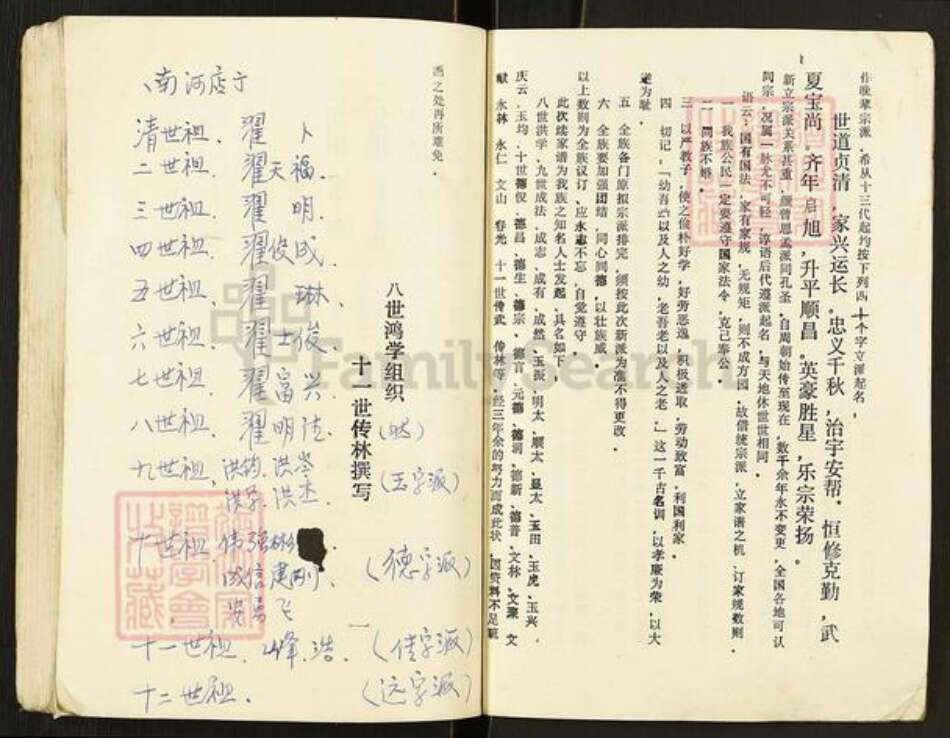 作晚辈宗派，希从十三代起均按下列四十个字立派起名，
世道贞清，家兴运长，忠义千秋，治宇安帮。恒修克勤，武
夏宝尚，齐年启旭，升平顺昌。英豪胜星，乐宗荣扬。
新立宗派关系甚重，颜曾思孟派同孔圣，自周朝始传至现在，数千余年永不变更，全国各地可认
同宗，况属一脉尤不可轻，谆语后代遵派起名，与天地休世世相同。
语云：国有国法，家有家规，无规矩，则不成方园，故借统宗派，立家谱之机，订家规数则
一 我族公民一定要遵守国家法令，克己奉公。
二 同族不婚。
三 以严教子，使之俭朴好学，好劳恶逸，积极进取，劳动致富，利国利家。
四 切记，“幼吾幼以及人之幼，老吾老以及人之老。”这一千古名训，以孝廉为荣，以大
逆为耻。
五 全族各门原拟宗派排完，须按此次新派为准不得更改。
六 全族要加强团结，同心同德，以壮族威。
以上数则为全族议订，应永志不忘，自觉遵守。
此次续家谱为我族之知名人士发起，具名如下。
八世洪学，九世成法，成志，成有，成然，玉振，明太，顺太，显太，玉田，玉虎，玉兴，
庆云，玉均，十世德俊，德昌，德生，德宗，德言，元德，德润，德新，德普，文林，文秉，文
献，永林，永仁，文山，春光，十一世传武，传林等，经三年余的努力而成此状，因资料不足疏
洒之处再所难免。
八世鸿学组织
十一世传林撰写
一
南河店于
清世祖．翟 卜
二世祖．翟天福．
三世祖．翟 明．
四世祖．翟俊成
五世祖．翟 琳．
六世祖．翟士俊
七世祖．翟富兴
八世祖．翟明法（成）
九世祖．洪钧．洪岑（玉字派）
洪学．洪杰
十世祖．伟强彬（德字派）
成信 建刚
安勇飞
十一世祖．峰．浩．（佳字派）
十二世祖．（远字派）